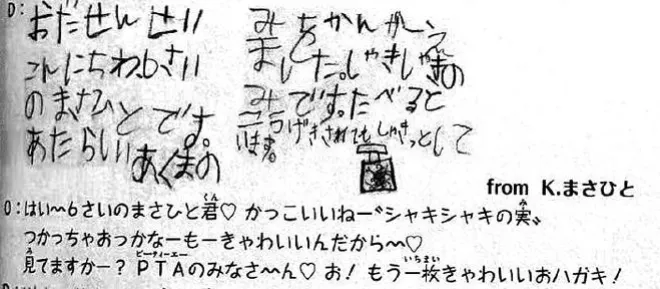 D:
おだせんせい
こんにちわ。6さい
のまさひとです。
あたらしいあくまの
みをかんがえ
ました。しゃきしゃきの
みです。たべると
こうげきされてもしゃきっとして
います。
from K.まさひと
O:はい〜6さいのまさひと君♡ かっこいいねー〝シャキシャキの実〟
つかっちゃおっかなーもーきゃわいいんだから〜♡
見てますかー?PTAのみなさ〜ん♡ お!もう一枚きゃわいいおハガキ!